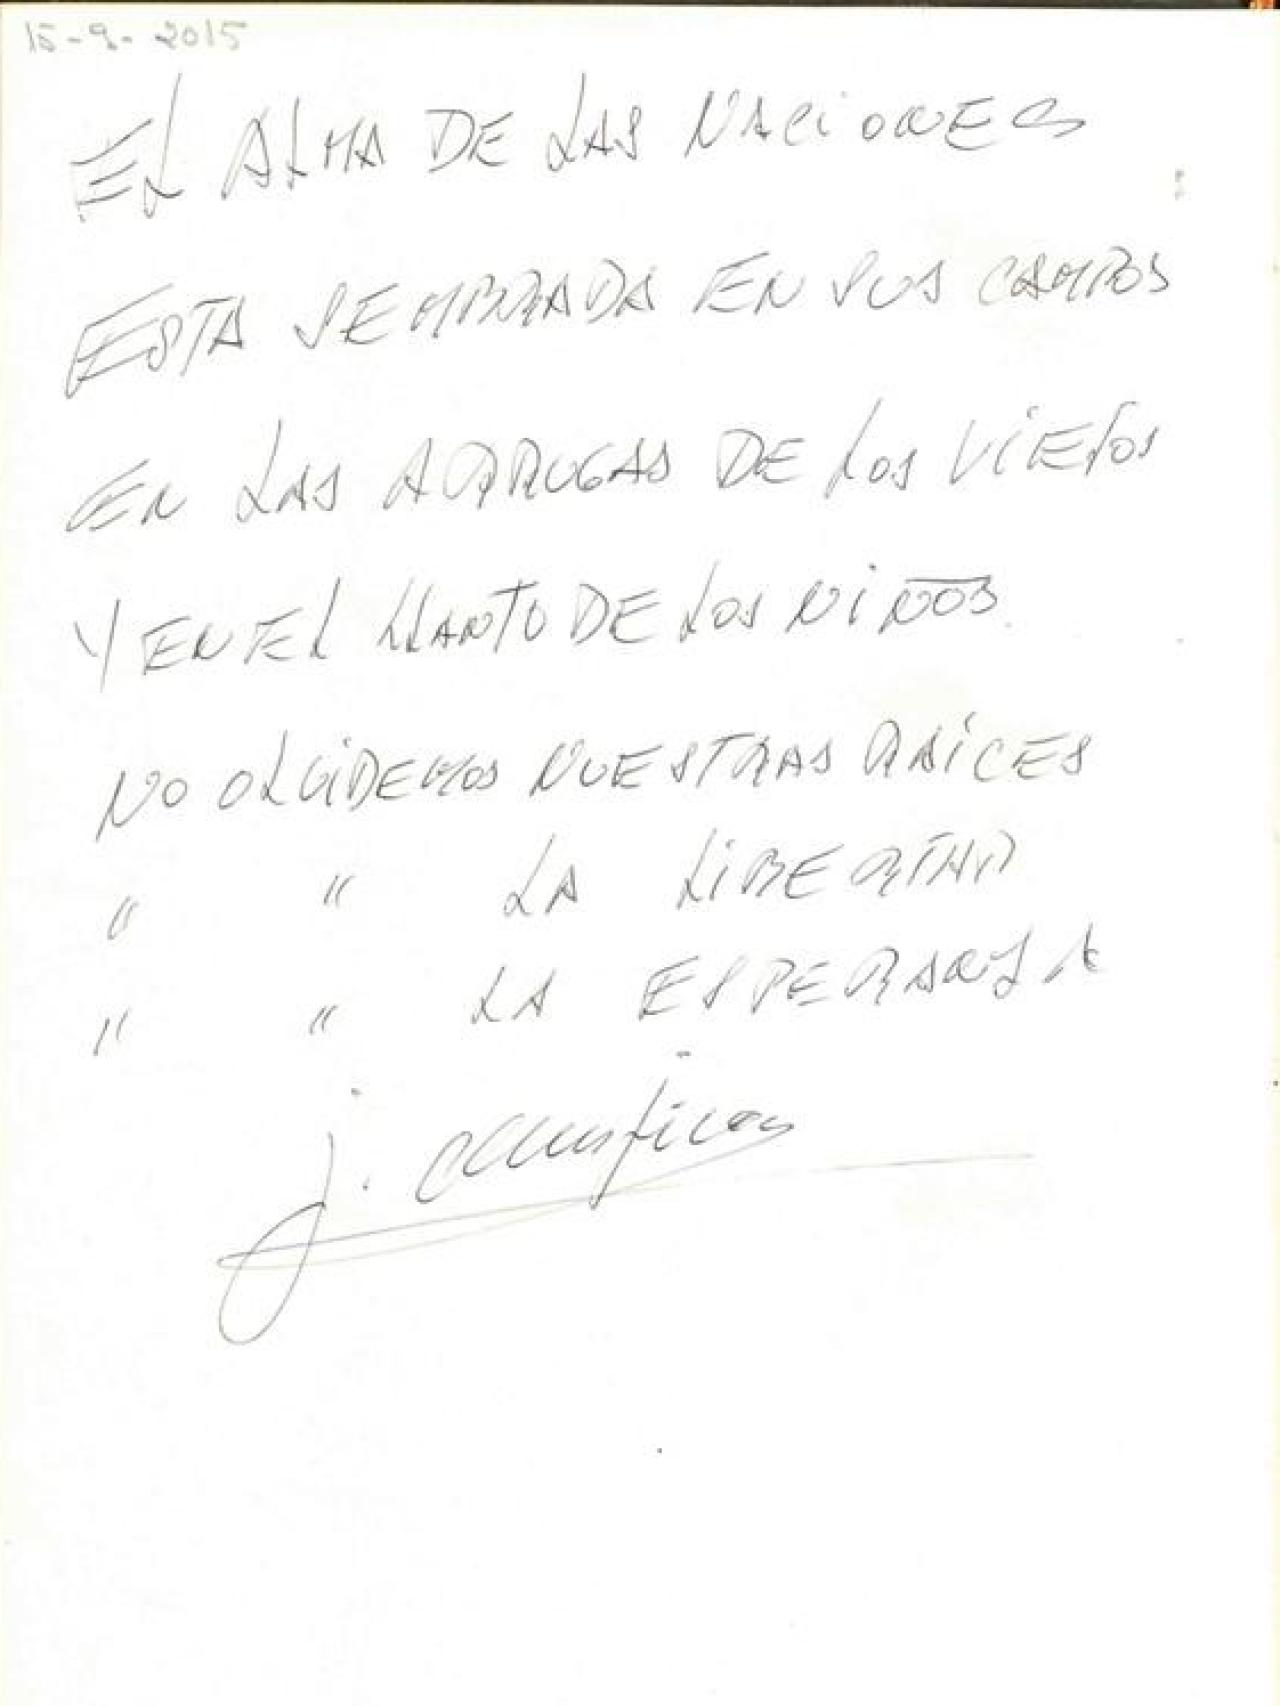 15-9-2015
EL ALMA DE LAS NACIONES
ESTA SEMBRADA EN SUS CAMPOS
EN LAS ARRUGAS DE LOS VIEJOS
Y EN EL LLANTO DE LOS NIÑOS.
NO OLVIDEMOS NUESTRAS RAÍCES
" " LA LIBERTAD
" " LA ESPERANZA
J.